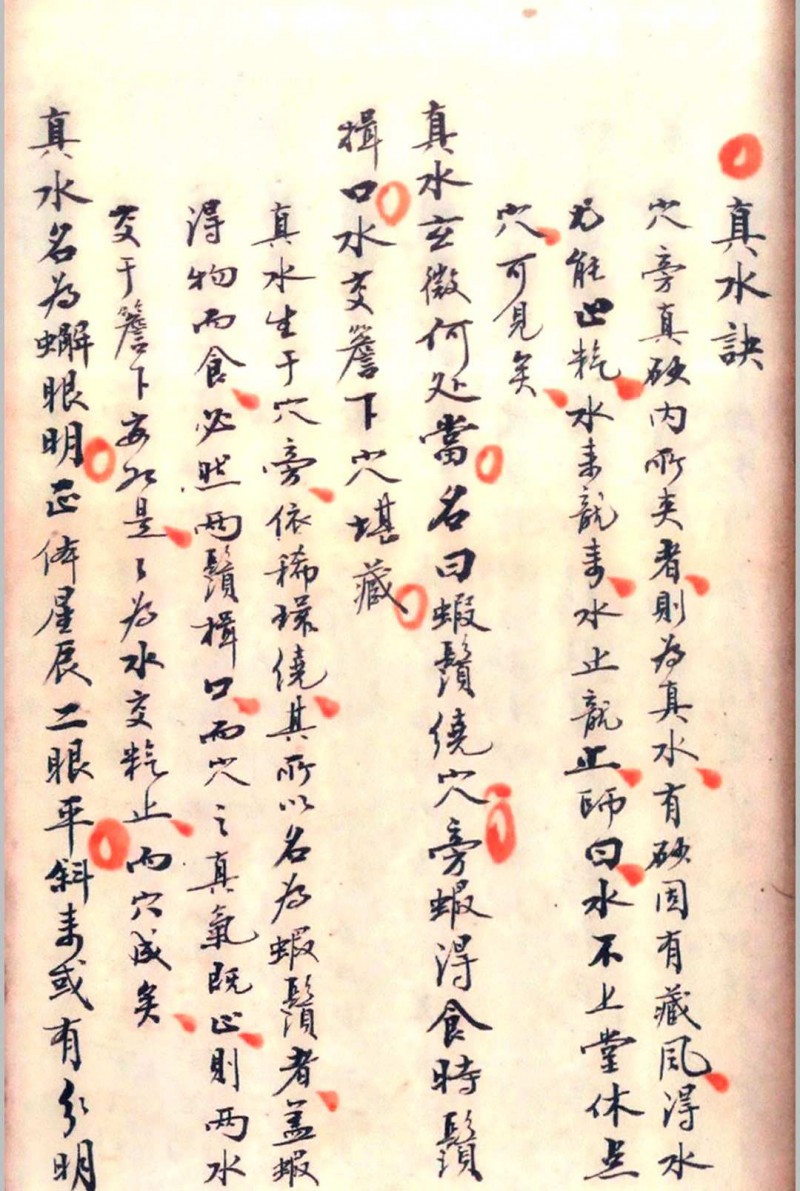 真水訣
穴旁真砂內所夾者則為真水有砂固有藏風得水
尤能止
水来龍来水止龍止師曰水不上堂休点
穴可見矣
真水玄微何处當名曰蝦鬚繞穴旁蝦得食時鬚
揖口水交簷下穴堪藏
真水生于穴旁依稀環繞其所以名為蝦鬚者盖蝦
得物而食必然兩鬚揖口而穴之真氣既止則兩水
交于簷下
是々為水交
止而穴成矣
真水名為蠏眼明
体星辰二眼平斜来或有分明